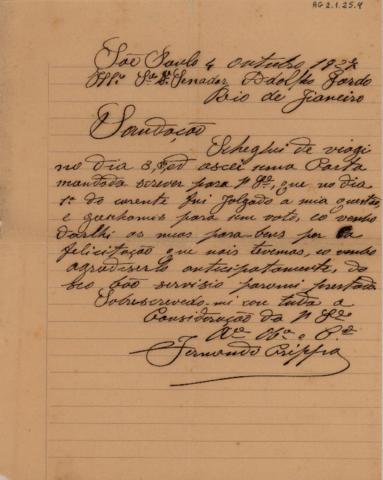 AG 2.1.25.9
São Paulo 4 outubro 1927
Illº Sr Dr Senador Adolpho Gordo
Rio de Janeiro
Saudação
Scheghei de viagi
no dia 3, ed ascei uma Carta
mandada screver para Vª Sª, que no dia
1º do corente fui jolgado a mia questão
e ganhamis para um voto, eo venho
as meas parabens por
felicitação que nois tevemos, eo venho
agradiserlo anticipatamente, do
seo bão servisio parami prestado
Sobrescrevedo-mi con tuda a
Consideração da Vª Sª
Fernando Crippa